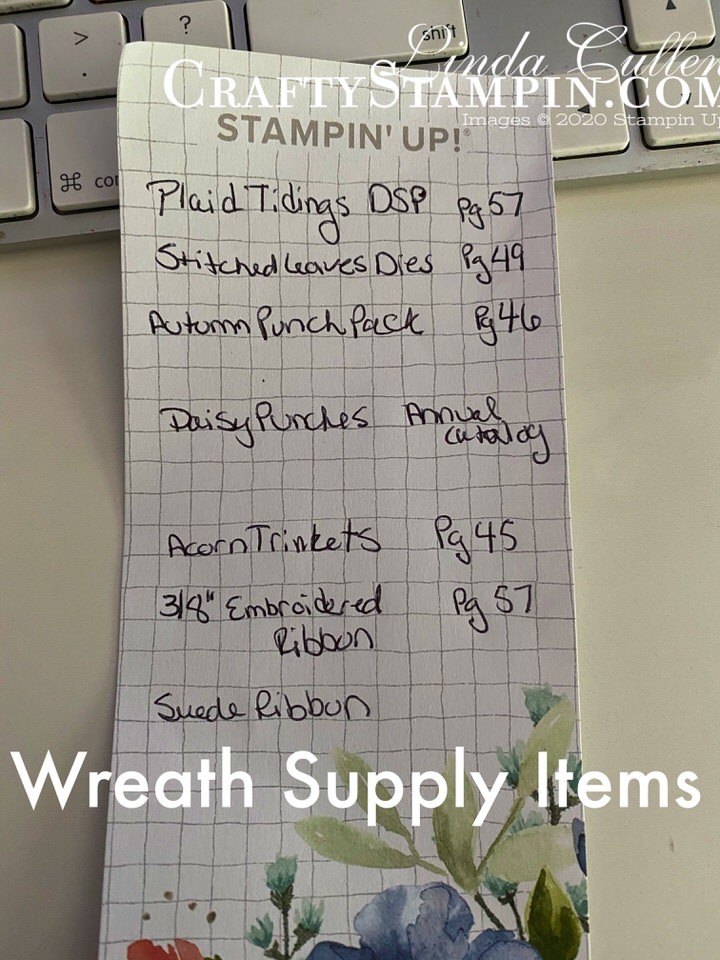 > .
?
shift
Linda Cullen
CRAFTYSTAMPIN.COM
Images © 2020 Stampin Up
STAMPIN' UP!®
⌘
Plaid Tidings DSP Pg 57
Stitched Leaves Dies Pg 49
Autumn Punch Pack Pg 46
Daisy Punches Annual
Catalog
Acorn Trinkets Pg 45
3/8" Embroidered Pg 57
Ribbon
Suede Ribbon
Wreath Supply Items